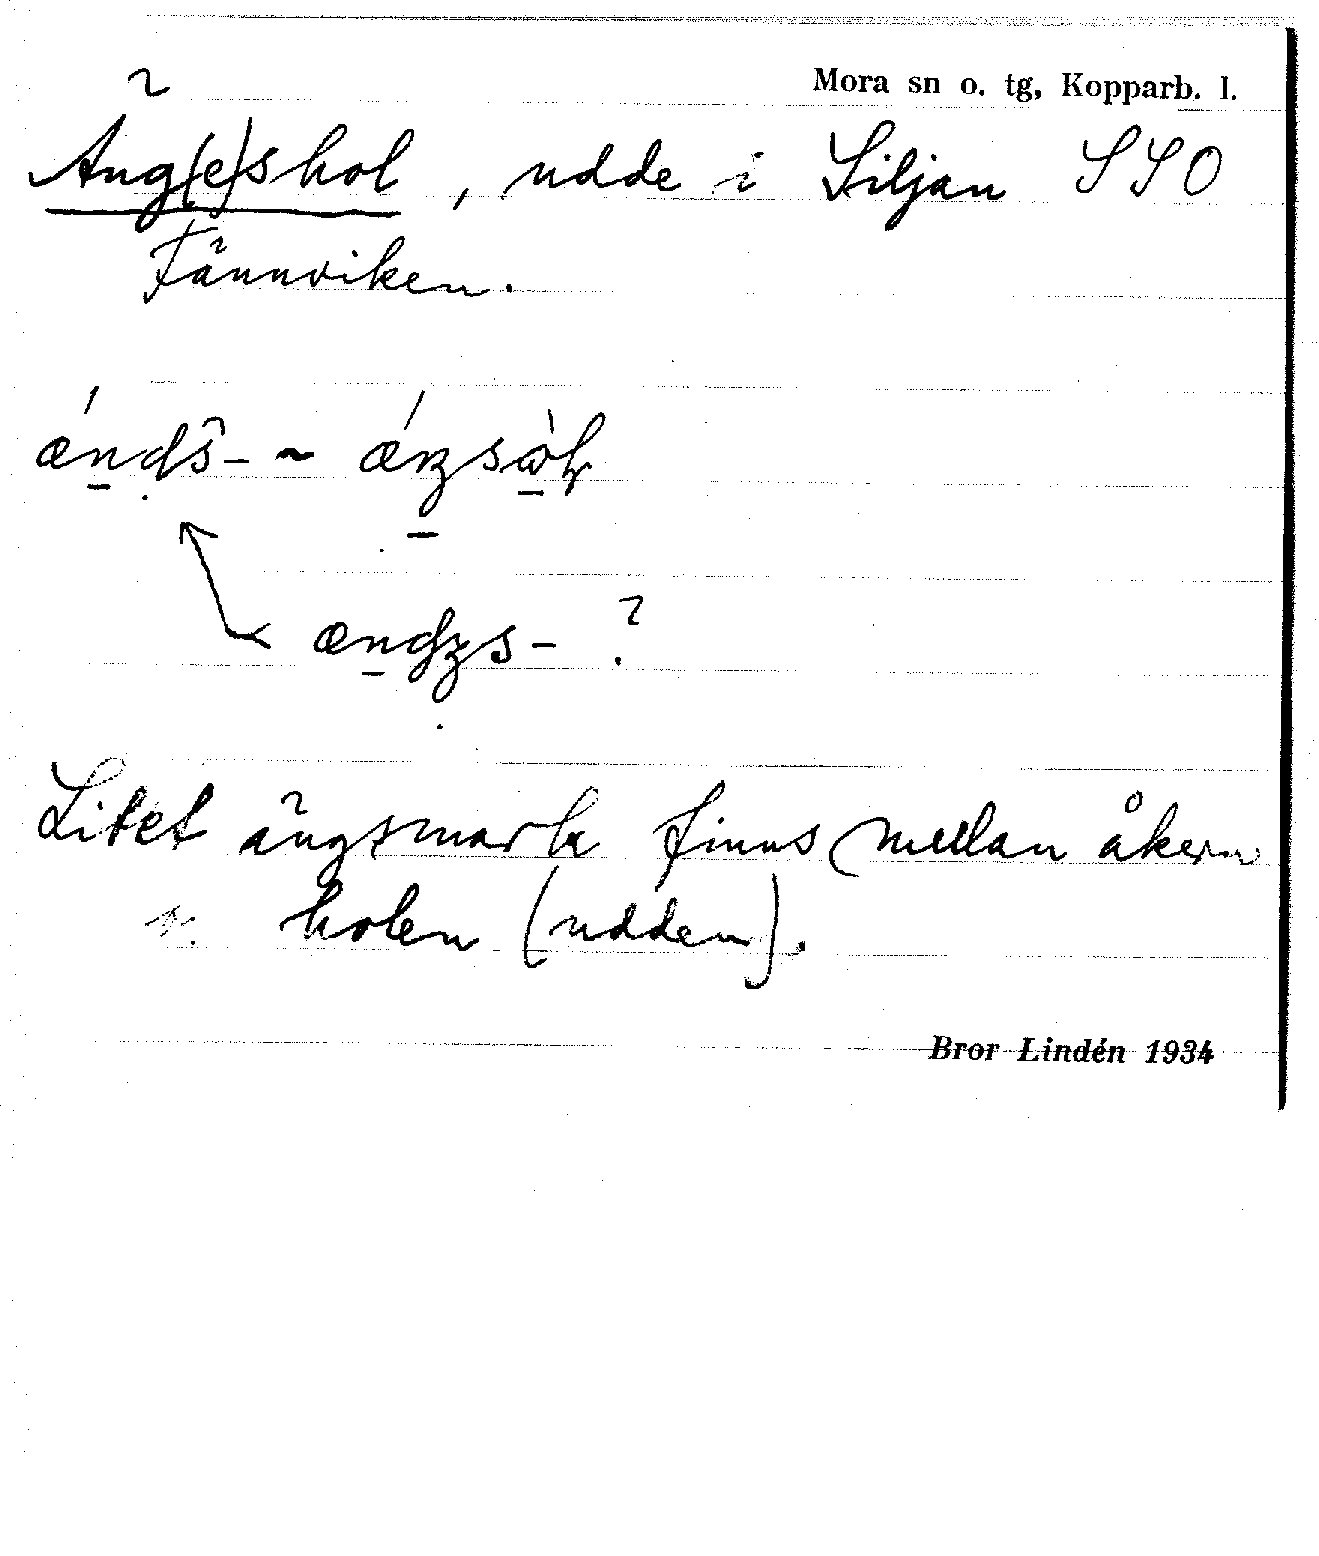 Mora sn o. tg, Kopparb. l.
Äng(e)shol, udde i Siljan SSO
Fännviken.
Litet ängsmark finns mellan åkern
o. holen (udden).
Bror Lindén 1934